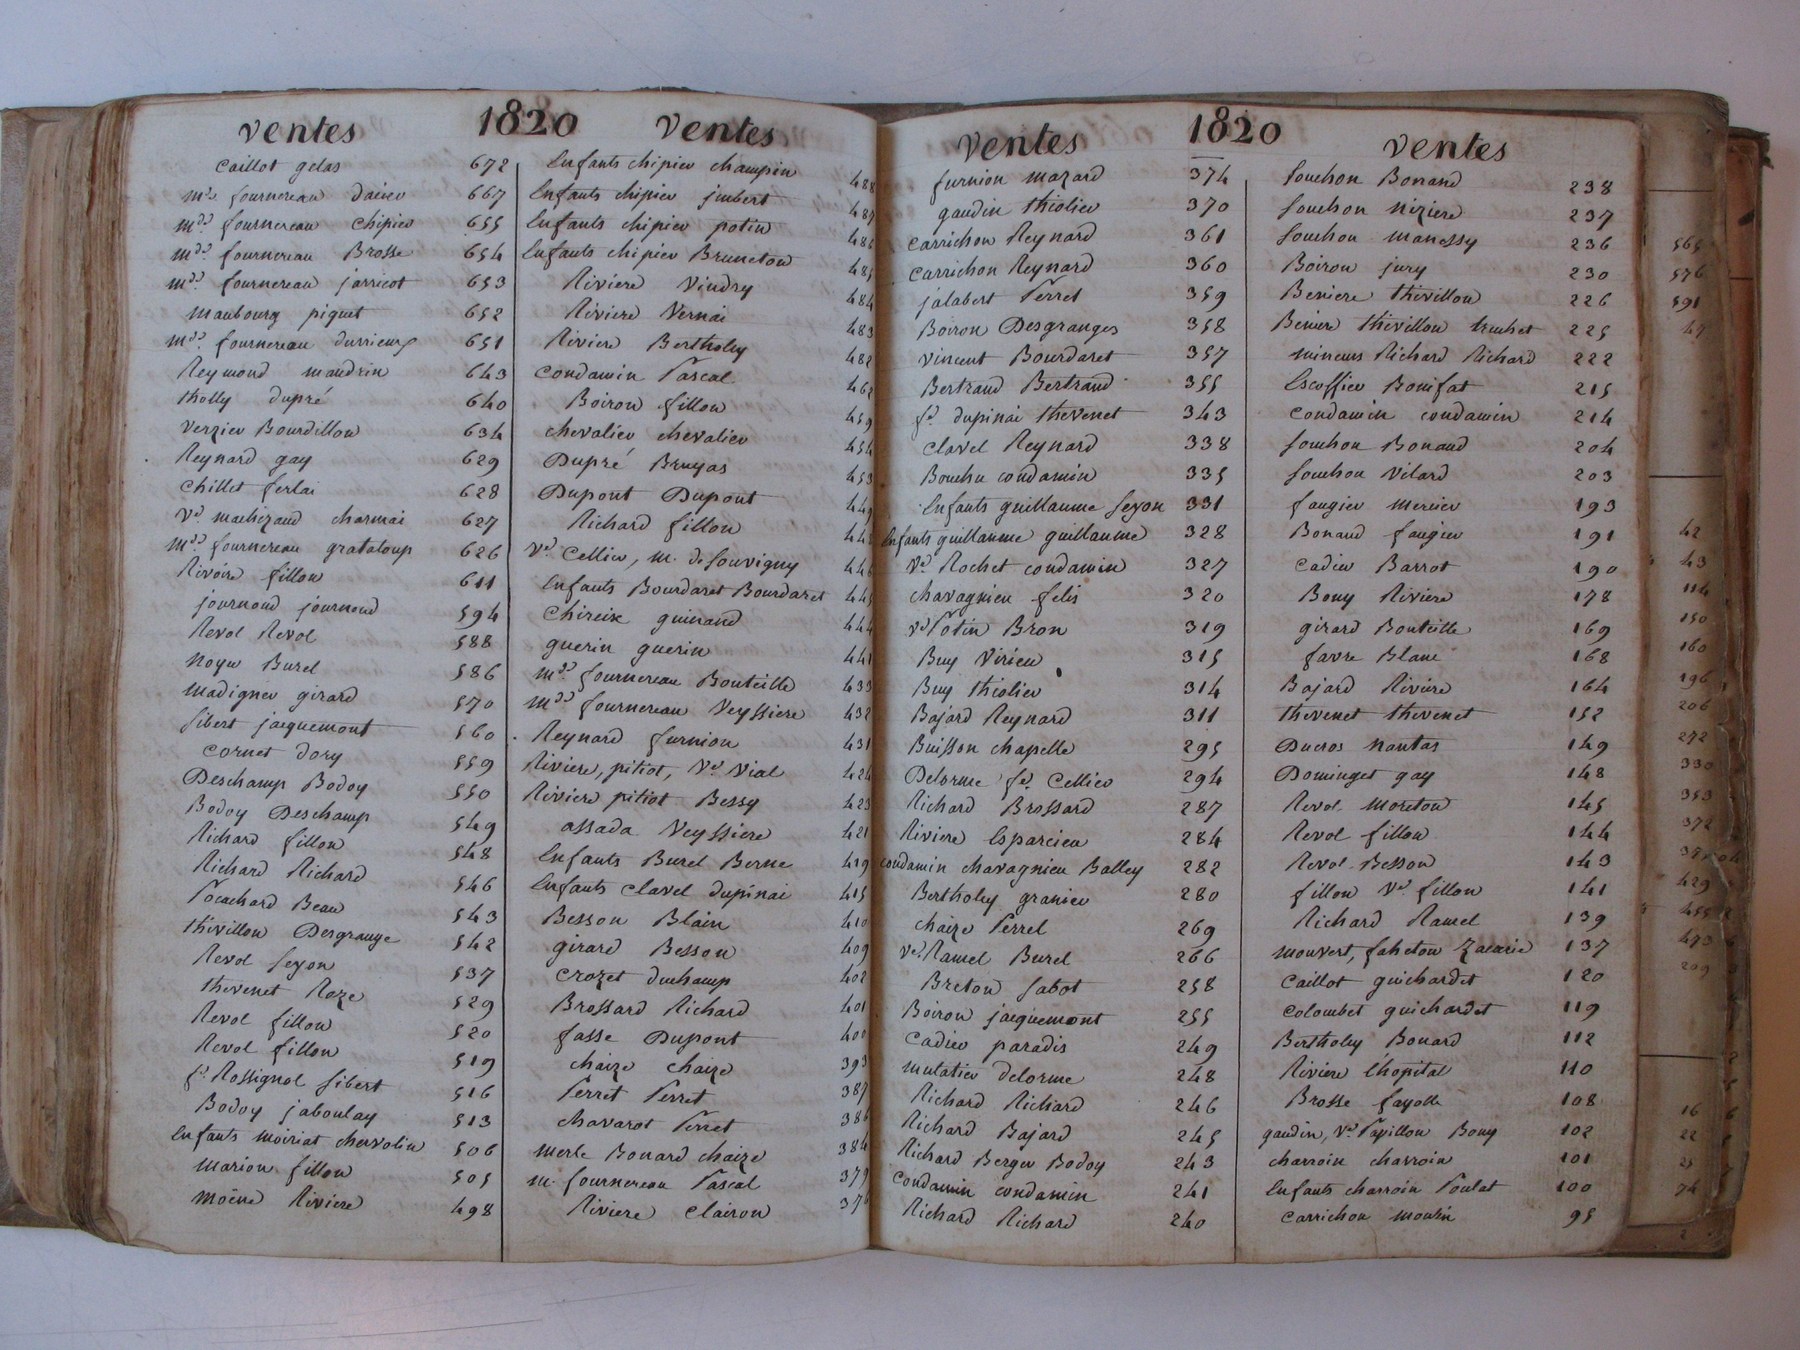 ventes 1820 ventes
caillot gelas 672
mds fournereau dacier 667
mds fournereau chipier 655
mds fournereau Brosse 654
mds fournereau jarricot 653
maubourg piquet 652
mds fournereau durrieux 651
Reymond mandrin 643
tholly dupré 640
verzier Bourdillon 634
Reynard gay 629
chillet ferlai 628
ve. machizaud charmai 627
mds fournereau grataloup 626
Rivoire fillon 611
journoud journoud 594
Revol Revol 588
noyer Burel 586
madignier girard 570
sibert jacquemont 560
cornet dory 559
Deschamp Bodoy 550
Bodoy Deschamp 549
Richard fillon 548
Richard Richard 546
Pocachard Beau 543
thivillon Desgrange 542
Revol seyon 537
thevenet Roze 529
Revol fillon 520
Revol fillon 519
fs. Rossignol sibert 516
Bodoy jaboulay 513
Enfants moiriat chervolin 506
marion fillon 505
moëne Riviere 498
Enfants chipier champin 488
Enfants chipier jmbert 487
Enfants chipier potin 486
Enfants chipier Bruneton 485
Riviere Vindry 484
Riviere Vernai 483
Riviere Bertholey 482
condamin Pascal 462
Boiron fillon 459
chevalier chevalier 454
Dupré Bruyas 453
Dupont Dupont 449
Richard fillon 448
Ve. Cellier, m. de souvigny 446
Enfants Bourdaret Bourdaret 445
chireix guinand 444
guerin guerin 441
mds fournereau Bouteille 433
mds fournereau Veyssiere 432
Reynard furnion 431
Riviere, pitiot, Ve. Vial 424
Riviere pitiot Bessy 423
assada Veyssiere 421
Enfants Burel Berne 419
Enfants clavel dupinai 415
Besson Blain 410
girard Besson 409
crozet duchamp 402
Brossard Richard 401
fasse Dupont 400
chaize chaize 393
Perret Perret 387
chavarot Perret 386
merle Bonard chaize 384
m. fournereau Pascal 379
Riviere clairon 376
ventes 1820 ventes
furnion mazard 374
gaudin thiolier 370
carrichon Reynard 361
carrichon Reynard 360
jalabert Perret 359
Boiron Desgranges 358
vincent Bourdaret 357
Bertrand Bertrand 355
fs. dupinai thevenet 343
clavel Reynard 338
Bouchu condamin 335
Enfants guillaume seyon 331
Enfants guillaume guillaume 328
Ve. Rochet condamin 327
chavagnieu felis 320
ve Potin Bron 319
Buy Virieu 315
Buy thiolier 314
Bajard Reynard 311
Buisson chapelle 295
Delorme fs. Cellier 294
Richard Brossard 287
Riviere Esparcieu 284
condamin chavagnieu Balley 282
Bertholey granier 280
chaize Perrel 269
ve. Ramel Burel 266
Breton sabot 258
Boiron jacquemont 255
cadier paradis 249
mulatier delorme 248
Richard Richard 246
Richard Bajard 245
Richard Berger Bodoy 243
condamin condamin 241
Richard Richard 240
souchon Bonand 238
souchon niziere 237
souchon manessy 236
Boiron jury 230
Beniere thivillon 226
Beniere thivillon truchet 225
mineurs Richard Richard 222
Escoffier Bonifat 215
condamin condamin 214
souchon Bonaud 204
souchon Vilard 203
faugier mercier 193
Bonaud faugier 191
cadier Barrot 190
Bony Riviere 178
girard Bouteille 169
favre Blanc 168
Bajard Riviere 164
thevenet thevenet 152
Ducros nantas 149
Dominget gay 148
Revol moreton 145
Revol fillon 144
Revol Besson 143
fillon ve. fillon 141
Richard Ramel 139
mouvert, faheton Zacarie 137
caillot guichardet 120
colombet guichardet 119
Bertholey Bonard 112
Riviere l'hopital 110
Brosse fayolle 108
gaudin, Ve. Papillon Bony 102
charroin charroin 101
Enfants charroin Poulat 100
carrichon moulin 95
565
576
591
47
42
43
114
150
160
196
206
272
330
353
372
429
455
473
209
16
22
25
74